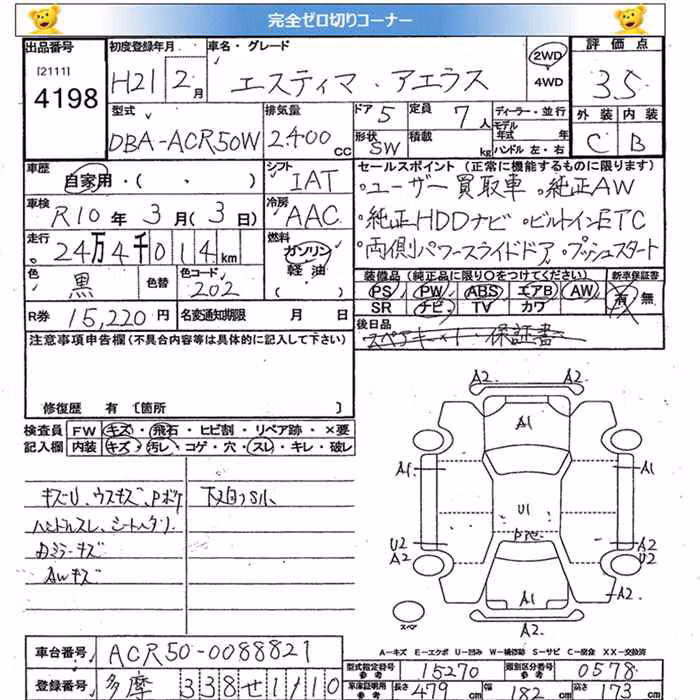 完全ゼロ切りコーナー
出品番号 初度登録年月 車名・グレード 評価点
[2111]
4198
H21 2月 エスティマ・アエラス 2WD 4WD 3.5
型式 排気量 ドア 5 定員 7人 ディーラー・並行 外装 内装
モデル年式 年
DBA-ACR50W 2.400cc 形状 SW 積載 kg ハンドル 左・右 C B
車歴 シフト セールスポイント(正常に機能するものに限ります)
自家用・( ・ ) IAT ・ユーザー買取車 ・純正AW
車検 R10年3月(3日) 冷房 AAC ・純正HDDナビ ・ビルトインETC
走行 24万4千014km 燃料 ガソリン ・両側パワースライドドア ・プッシュスタート
軽油
( )
色 黒 色替 色コード 202
装備品(純正品に限り○をつけてください) 新車保証書
PS PW ABS エアB AW 有 無
SR ナビ TV カワ
R券 15,220円 名変通知期限 月 日
後日品
スペアキー・保証書
注意事項申告欄(不具合内容等は具体的に記入して下さい)
修復歴 有 〔箇所 〕
検査員 FW キズ・飛石・ヒビ割・リペア跡・×要
記入欄 内装 キズ・汚レ・コゲ・穴・スレ・キレ・破レ
キズU、ウスキズ、Pボケ
ハンドルスレ、シートヘタリ
AWキズ
A2 A2
A1
A1 A1
U1
U2 A2
A2 U2
A1 A2
A2
スペア
A-キズ E-エクボ U-凹み W-補修跡 S-サビ C-腐食 XX-交換済
車台番号 ACR50-0088821
型式指定番号 参考 15270 類別区分番号 参考 0578
登録番号 多摩 338 せ 1110
車庫証明用 参考 長さ 479 cm 幅 182 cm 高さ 173 cm